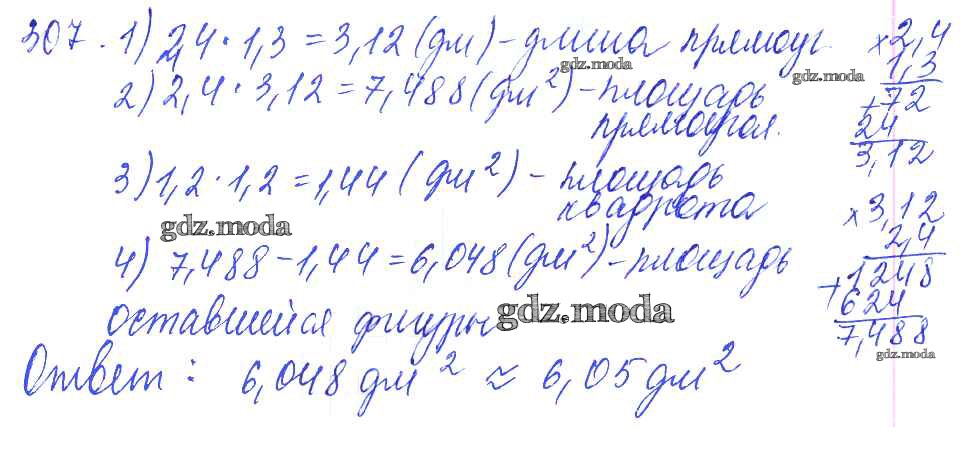 307. 1) 2,4 · 1,3 = 3,12 (дм) – длина прямоуг.
2) 2,4 · 3,12 = 7,488 (дм²) – площадь
прямоугол.
3) 1,2 · 1,2 = 1,44 (дм²) – площадь
квадрата
4) 7,488 – 1,44 = 6,048 (дм²) – площадь
оставшейся фигуры
Ответ: 6,048 дм² ≈ 6,05 дм²
× 2,4
1,3
+ 72
24
3,12
× 3,12
2,4
+ 1248
624
7,488
gdz.moda
gdz.moda
gdz.moda
gdz.moda
gdz.moda